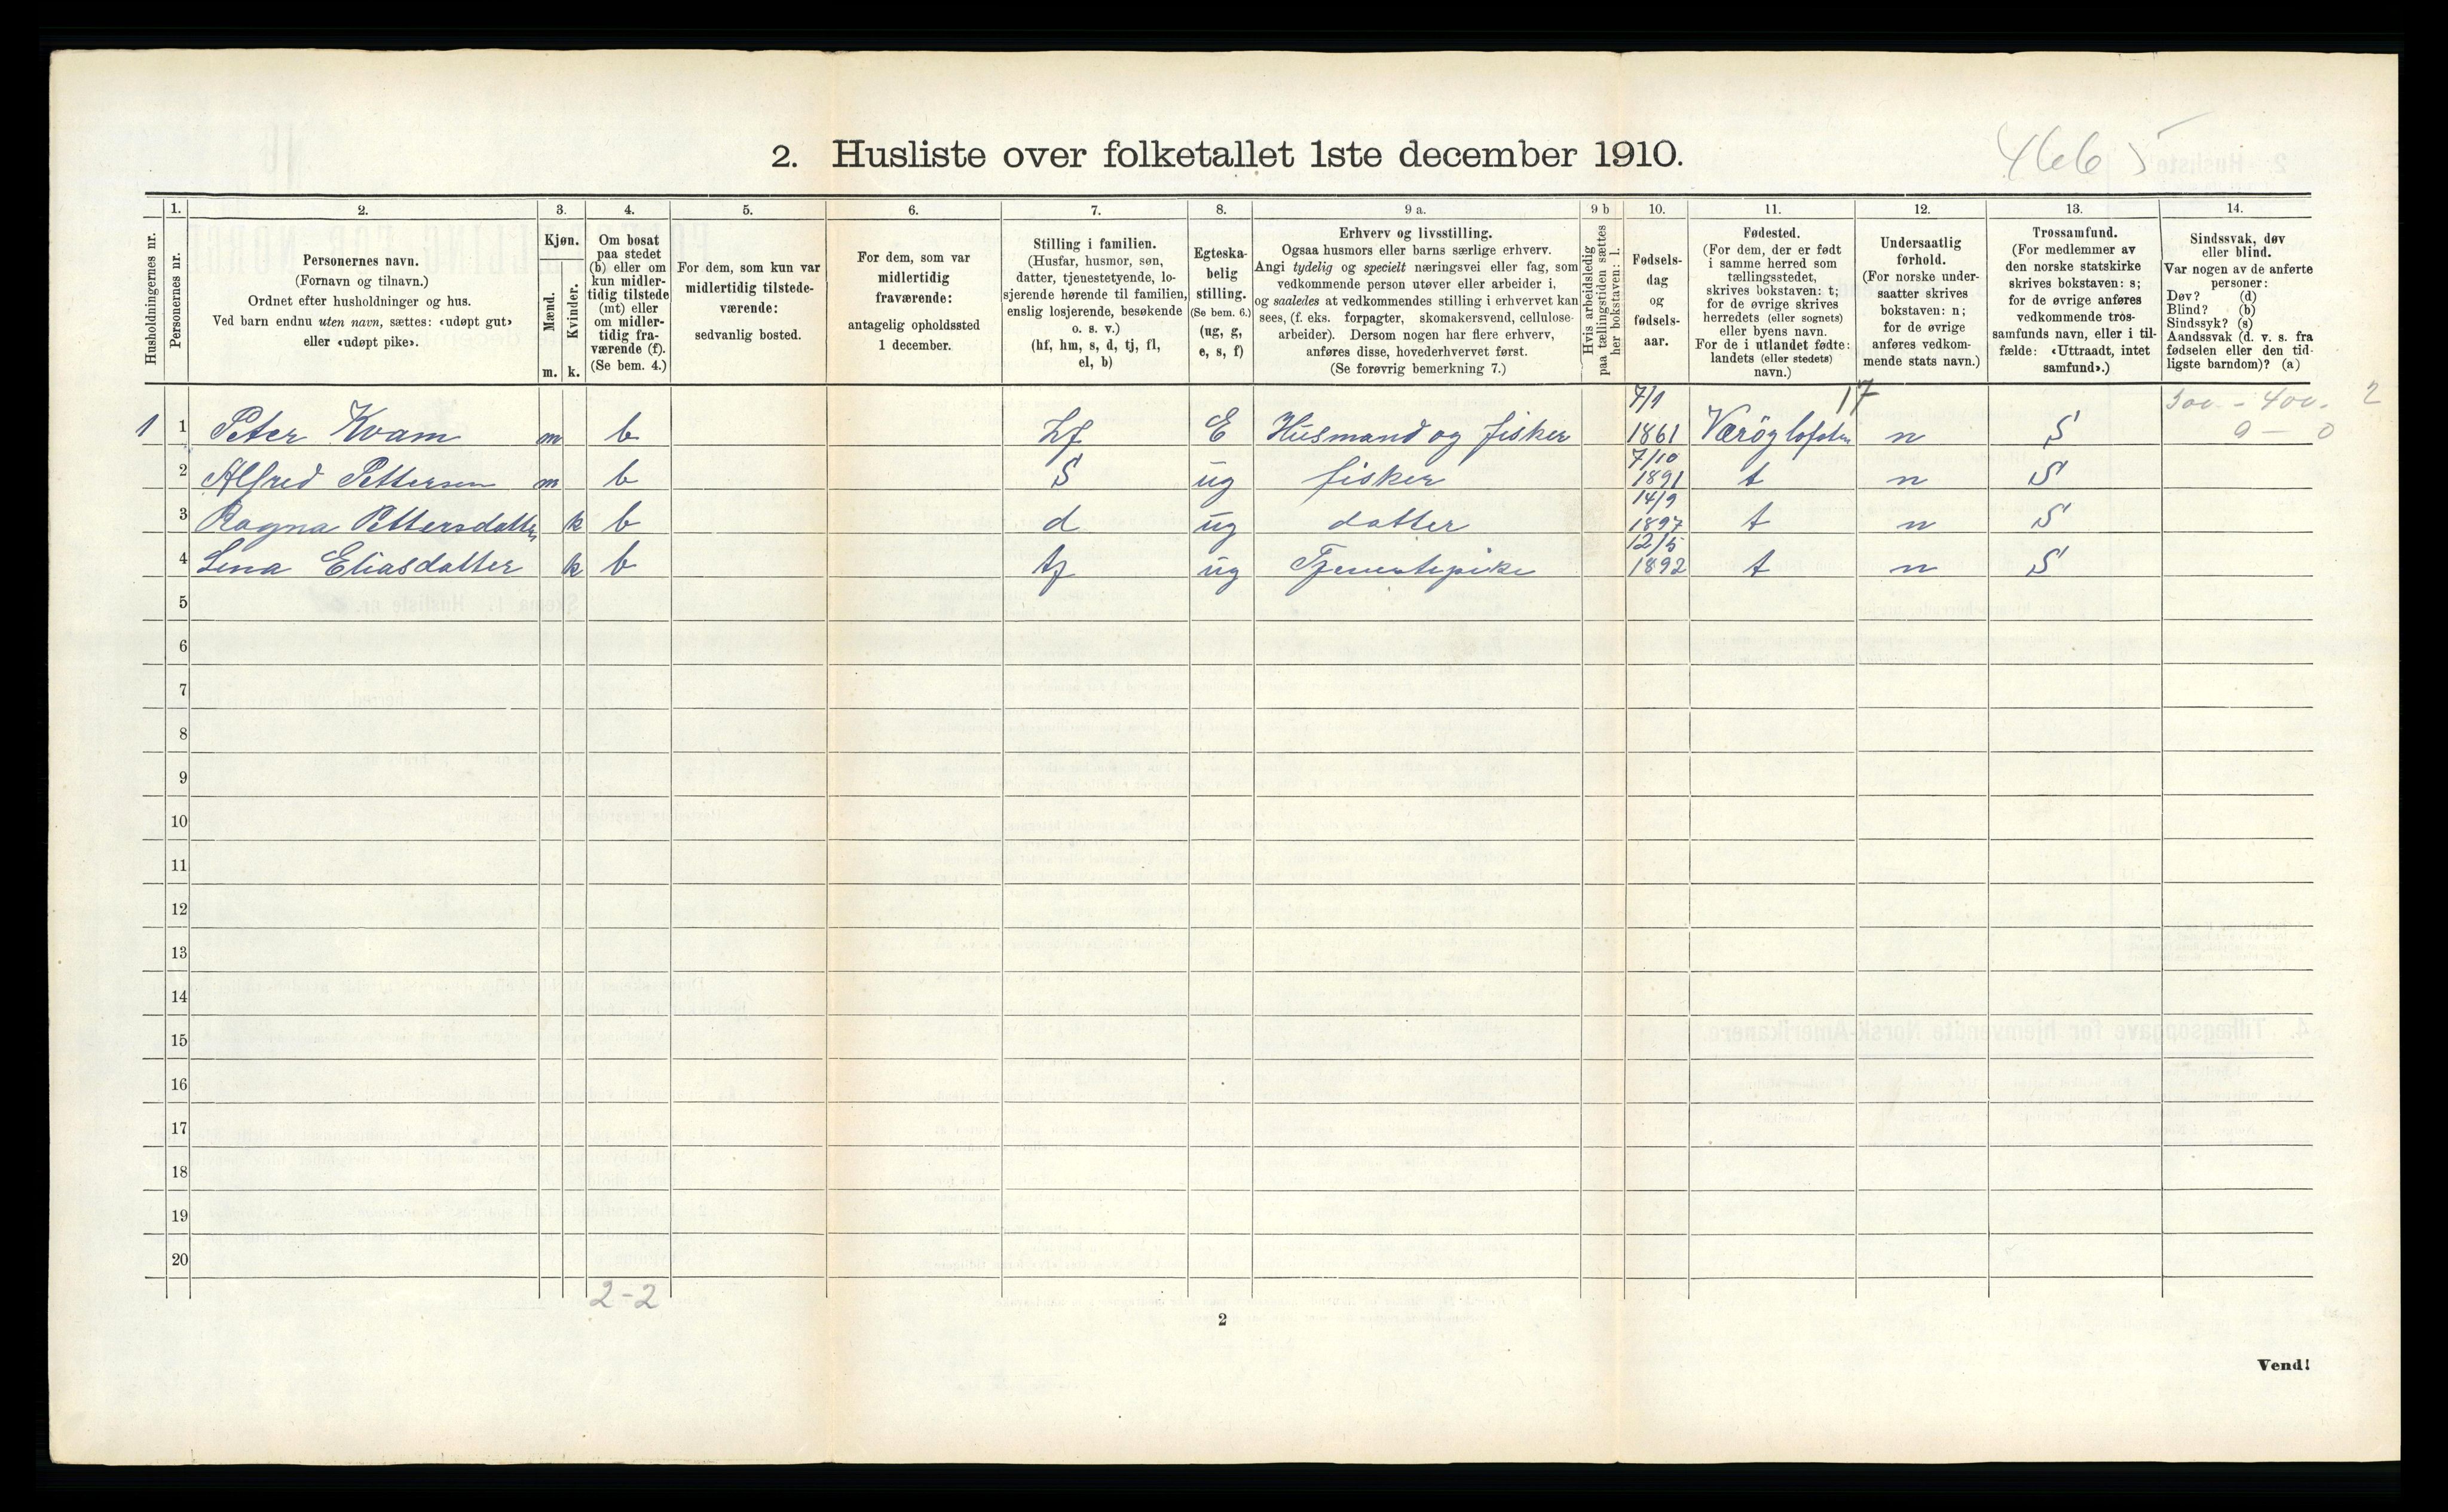 2. Husliste over folketallet 1ste december 1910.
466 5
Husholdningernes nr.
1.
Personernes nr.
2.
Personernes navn.
(Fornavn og tilnavn.)
Ordnet efter husholdninger og hus.
Ved barn endnu uten navn, sættes: «udøpt gut»
eller «udøpt pike».
3.
Kjøn.
Mænd.
Kvinder.
m. k.
4.
Om bosat
paa stedet
(b) eller om
kun midler-
tidig tilstede
(mt) eller
om midler-
tidig fra-
værende (f).
(Se bem. 4.)
5.
For dem, som kun var
midlertidig tilstede-
værende:
sedvanlig bosted.
6.
For dem, som var
midlertidig
fraværende:
antagelig opholdssted
1 december.
7.
Stilling i familien.
(Husfar, husmor, søn,
datter, tjenestetyende, lo-
sjerende hørende til familien,
enslig losjerende, besøkende
o. s. v.)
(hf, hm, s, d, tj, fl,
el, b)
8.
Egteska-
belig
stilling.
(Se bem. 6.)
(ug, g,
e, s, f)
9 a.
Erhverv og livsstilling.
Ogsaa husmors eller barns særlige erhverv.
Angi tydelig og specielt næringsvei eller fag, som
vedkommende person utøver eller arbeider i,
og saaledes at vedkommendes stilling i erhvervet kan
sees, (f. eks. forpagter, skomakersvend, cellulose-
arbeider). Dersom nogen har flere erhverv,
anføres disse, hovederhvervet først.
(Se forøvrig bemerkning 7.)
9 b
Hvis arbeidsledig
paa tællingstiden sættes
her bokstaven: l.
10.
Fødsels-
dag
og
fødsels-
aar.
11.
Fødested.
(For dem, der er født
i samme herred som
tællingsstedet,
skrives bokstaven: t;
for de øvrige skrives
herredets (eller sognets)
eller byens navn.
For de i utlandet fødte:
landets (eller stedets)
navn.)
12.
Undersaatlig
forhold.
(For norske under-
saatter skrives
bokstaven: n;
for de øvrige
anføres vedkom-
mende stats navn.)
13.
Trossamfund.
(For medlemmer av
den norske statskirke
skrives bokstaven: s;
for de øvrige anføres
vedkommende tros-
samfunds navn, eller i til-
fælde: «Uttraadt, intet
samfund».)
14.
Sindssvak, døv
eller blind.
Var nogen av de anførte
personer:
Døv? (d)
Blind? (b)
Sindssyk? (s)
Aandssvak (d. v. s. fra
fødselen eller den tid-
ligste barndom)? (a)
7/1 17 300 - 400. 2
1 1 Peter Kvam m b hf E Husmand og fisker 1861 Værøy lofoten n S 0 - 0
7/10
2 Alfred Pettersen m b S ug fisker 1891 t n S
14/9
3 Ragna Pettersdatter k b d ug datter 1897 t n S
12/5
4 Lena Eliasdatter k b tj ug Tjenestepike 1892 t n S
5
6
7
8
9
10
11
12
13
14
15
16
17
18
19
20
2-2
2
Vend!